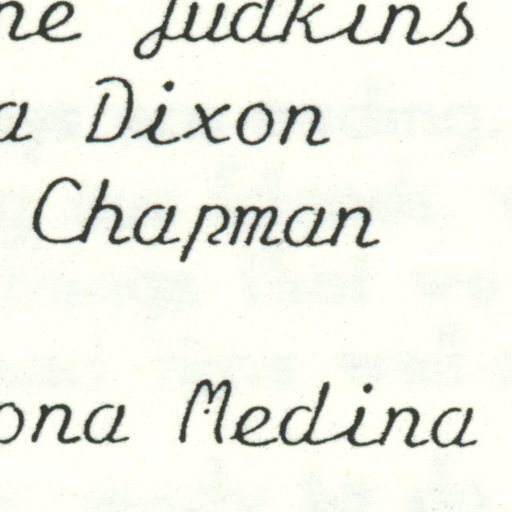 ne Judkins
a Dixon
Chapman
ona Medina